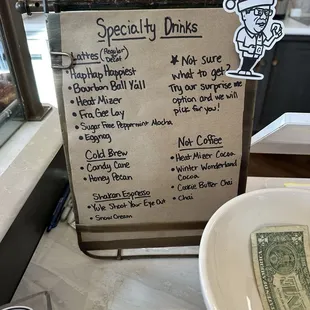 Specialty Drinks
Lattes (Regular/Decaf)
• Hap Hap Happiest
• Bourbon Ball Y'all
• Heat Mizer
• Fra Gee Lay
• Sugar Free Peppermint Mocha
• Eggnog
Cold Brew
• Candy Cane
• Honey Pecan
Shaken Espresso
• Yule Shoot Your Eye Out
• Snow
* Not sure
what to get?
Try our surprise me
option and we will
pick for you!
Not Coffee
• Heat Mizer Cocoa
• Winter Wonderland
Cocoa
• Cookie Butter Chai
• Chai